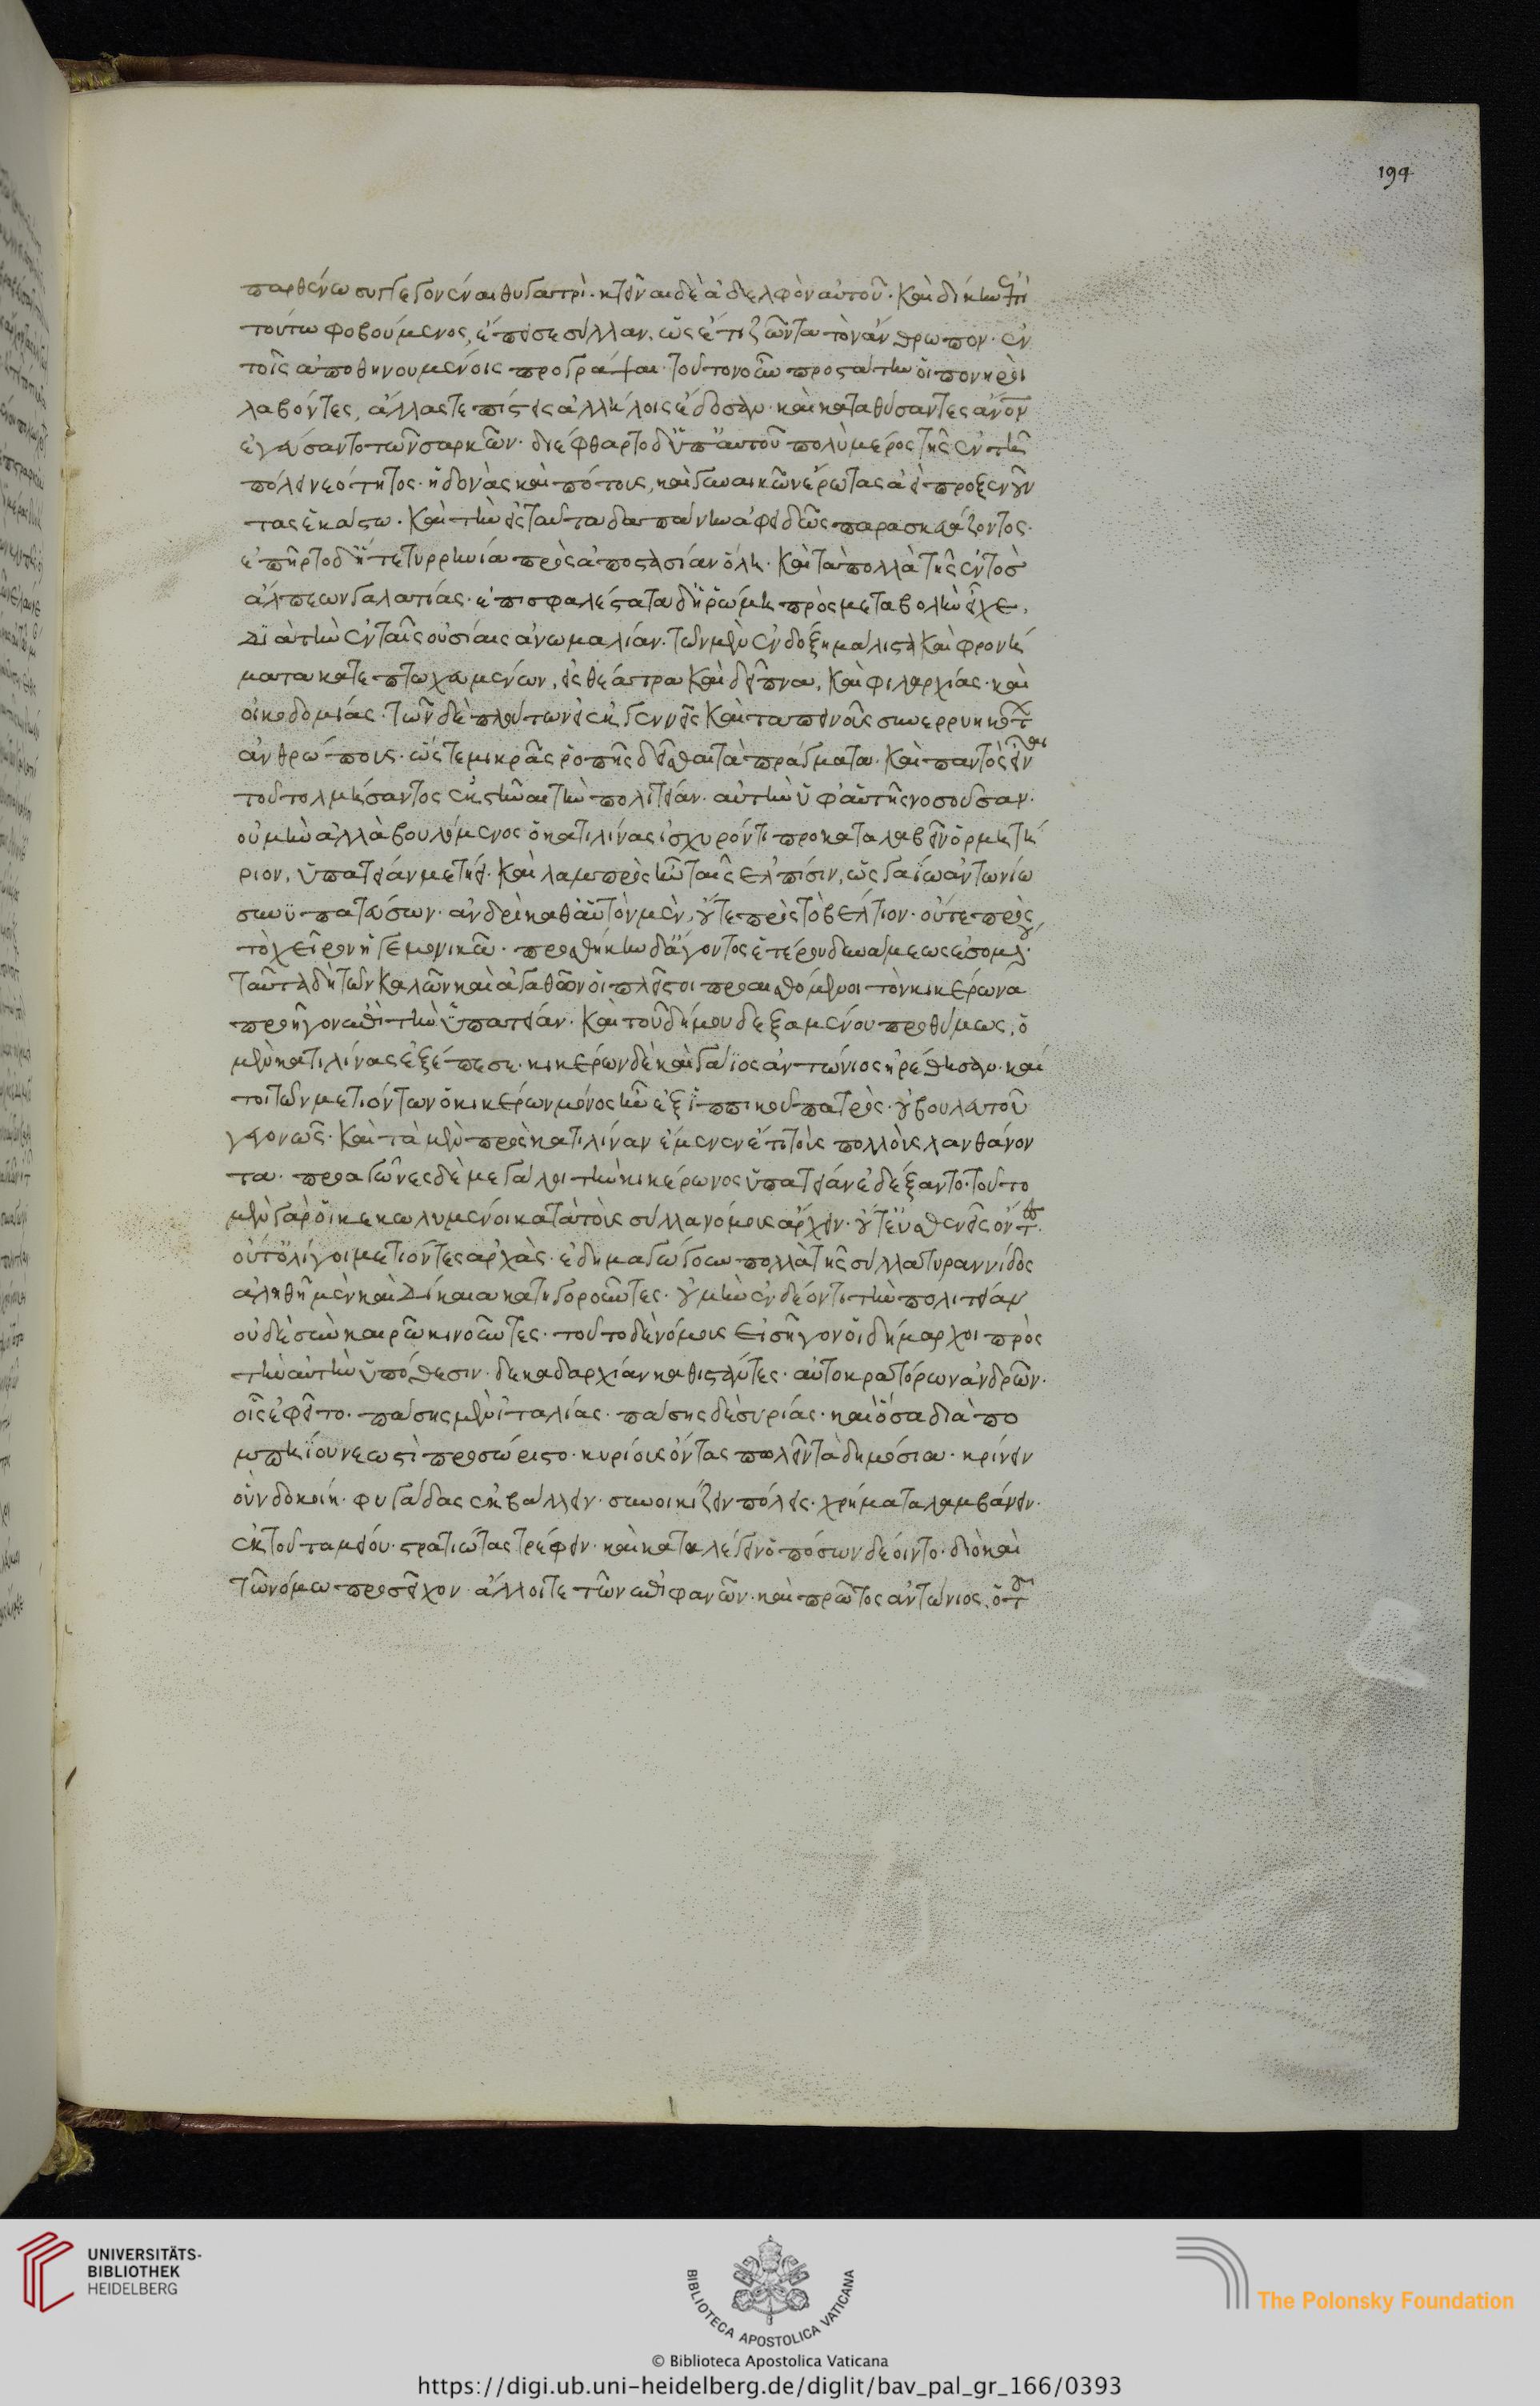 194
παρθένω συγγεγονέναι θυγατρὶ. κτεῖναι δὲ ἀδελφὸν αὐτοῦ. καὶ δίκην ἐπὶ
τούτω φοβούμενος, ἔπεισε σύλλαν, ὡς ἔτι ζῶντα τὸν ἄνθρωπον. ἐν
τοῖς ἀποθηνουμένοις προγράψαι. τοῦτον οὖν προστάτην οἱ πονηροὶ
λαβόντες, ἄλλας τε πίστεις ἀλλήλοις ἔδοσαν. καὶ καταθύσαντες ἄνον
ἐγεύσαντο τῶν σαρκῶν. διέφθαρτο δ' ὑπ' αὐτοῦ πολὺ μέρος τῆς ἐν τῆ
πόλει νεότητος. ἡδονὰς καὶ πότους, καὶ γυναικῶν ἔρωτας ἀεὶ προξενοῦν
τος ἑκάστω. καὶ τὴν εἰς ταῦτα δαπάνην ἀφειδῶς παρασκευάζοντος.
ἐπῆρτο δ' ἥ τε τυρρηνία πρὸς ἀποστασίαν ὅλη. καὶ τὰ πολλὰ τῆς ἐντὸσ
ἄλπεων γαλατίας. ἐπισφαλέστατα δ' ἡ ῥώμη πρὸς μεταβολὴν εἶχε.
Διὰ τὴν ἐν ταῖς οὐσίαις ἀνωμαλίαν. τῶν μὲν ἐν δόξη μάλιστα καὶ φρονή
ματι κατεπτωχευμένων, εἰς θέατρα καὶ δεῖπνα, καὶ φιλαρχίας. καὶ
οἰκοδομίας. τῶν δὲ πλούτων εἰς ἀγεννεῖς καὶ ταπεινοὺς συνερρυηκότ
ἀνθρώπους. ὥστε μικρᾶς ῥοπῆς δεῖσθαι τὰ πράγματα. καὶ παντὸς εἶναι
τοῦ τολμήσαντος ἐκστῆσαι τὴν πολιτείαν. αὐτὴν ὑφ' αὑτῆς νοσοῦσαν.
οὐ μὴν ἀλλὰ βουλόμενος ὁ κατιλίνας ἰσχυρόν τι προκαταλαβεῖν ὁρμητή
ριον, ὑπατείαν μετήει. καὶ λαμπρὸς ἦν ταῖς ἐλπίσιν, ὡς γαΐω ἀντωνίω
συνϋπατεύσων. ἀνδρὶ καθ' αὑτὸν μὲν, οὔτε πρὸς τὸ βέλτιον. οὔτε πρὸς
τὸ χεῖρον ἡγεμονικῶ. προσθήκην δ' ἄγοντος ἑτέρου δυνάμεως ἐσομέν.
ταῦτα δὴ τῶν καλῶν καὶ ἀγαθῶν οἱ πλεῖστοι προαισθόμενοι τὸν κικέρωνα
προῆγον ἐπὶ τὴν ὑπατείαν. καὶ τοῦ δήμου δεξαμένου προθύμως, ὁ
μὲν κατιλίνας ἐξέπεσε. κικέρων δὲ καὶ γάϊος ἀντώνιος ἡρέθησαν. καί
τοι τῶν μετιόντων ὁ κικέρων μόνος ἦν ἐξ ἱππικοῦ πατρὸς. οὐ βουλευτοῦ
γεγονώς. καὶ τὰ μὲν πρὸς κατιλίναν ἔμενεν ἔτι τοὺς πολλοὺς λανθάνον
τα. προαγῶνες δὲ μεγάλοι τὴν κικέρωνος ὑπατείαν ἐδέξαντο. τοῦτο
μὲν γὰρ οἱ κεκωλυμένοι κατὰ τοὺς σύλλα νόμους ἄρχειν. οὔτ' ἀσθενεῖς ὄντ.
οὔτ' ὀλίγοι μετιόντες ἀρχὰς. ἐδημαγώγουν πολλὰ τῆς σύλλα τυραννίδος
ἀληθῆ μὲν καὶ Δίκαια κατηγοροῦντες. οὐ μὴν ἐν δέοντι τὴν πολιτείαν
οὐδὲ σὺν καιρῶ κινοῦντες. τοῦτο δὲ νόμους εἰσῆγον οἱ δήμαρχοι πρὸς
τὴν αὐτὴν ὑπόθεσιν. δεκαδαρχίαν καθιστάντες. αὐτοκρατόρων ἀνδρῶν.
οἷς ἐφεῖτο. πάσης μὲν ἰταλίας. πάσης δὲ συρίας. καὶ ὅσα διὰ πο
μπηΐου νεωστὶ προσώριστο. κυρίους ὄντας πωλεῖν τὰ δημόσια. κρίνειν
οὓς δοκοίη. φυγάδας ἐκβάλλειν. συνοικίζειν πόλεις. χρήματα λαμβάνειν.
ἐκ τοῦ ταμείου. στρατιώτας τρέφειν. καὶ καταλέγειν ὁπόσων δέοιντο. διὸ καὶ
τῶ νόμω προσεῖχον ἄλλοι τε τῶν ἐπιφανῶν. καὶ πρῶτος ἀντώνιος, ὁ τ
UNIVERSITÄTS-
BIBLIOTHEK
HEIDELBERG
BIBLIOTECA APOSTOLICA VATICANA
The Polonsky Foundation
© Biblioteca Apostolica Vaticana
https://digi.ub.uni-heidelberg.de/diglit/bav_pal_gr_166/0393